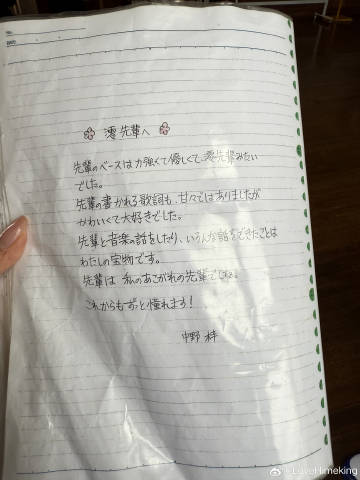 No.
DATE
澪先輩へ
先輩のベースは力強くて優しくて、澪先輩みたい
でした。
先輩の書かれる歌詞も、甘々ではありましたが
かわいくて大好きでした。
先輩と音楽の話をしたり、いろんな話をできたことは
わたしの宝物です。
先輩は 私のあこがれの先輩でした。
これからもずっと憧れます!
中野 梓
@LoveHimeking